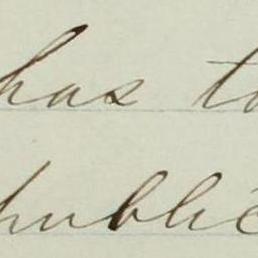 has to
public